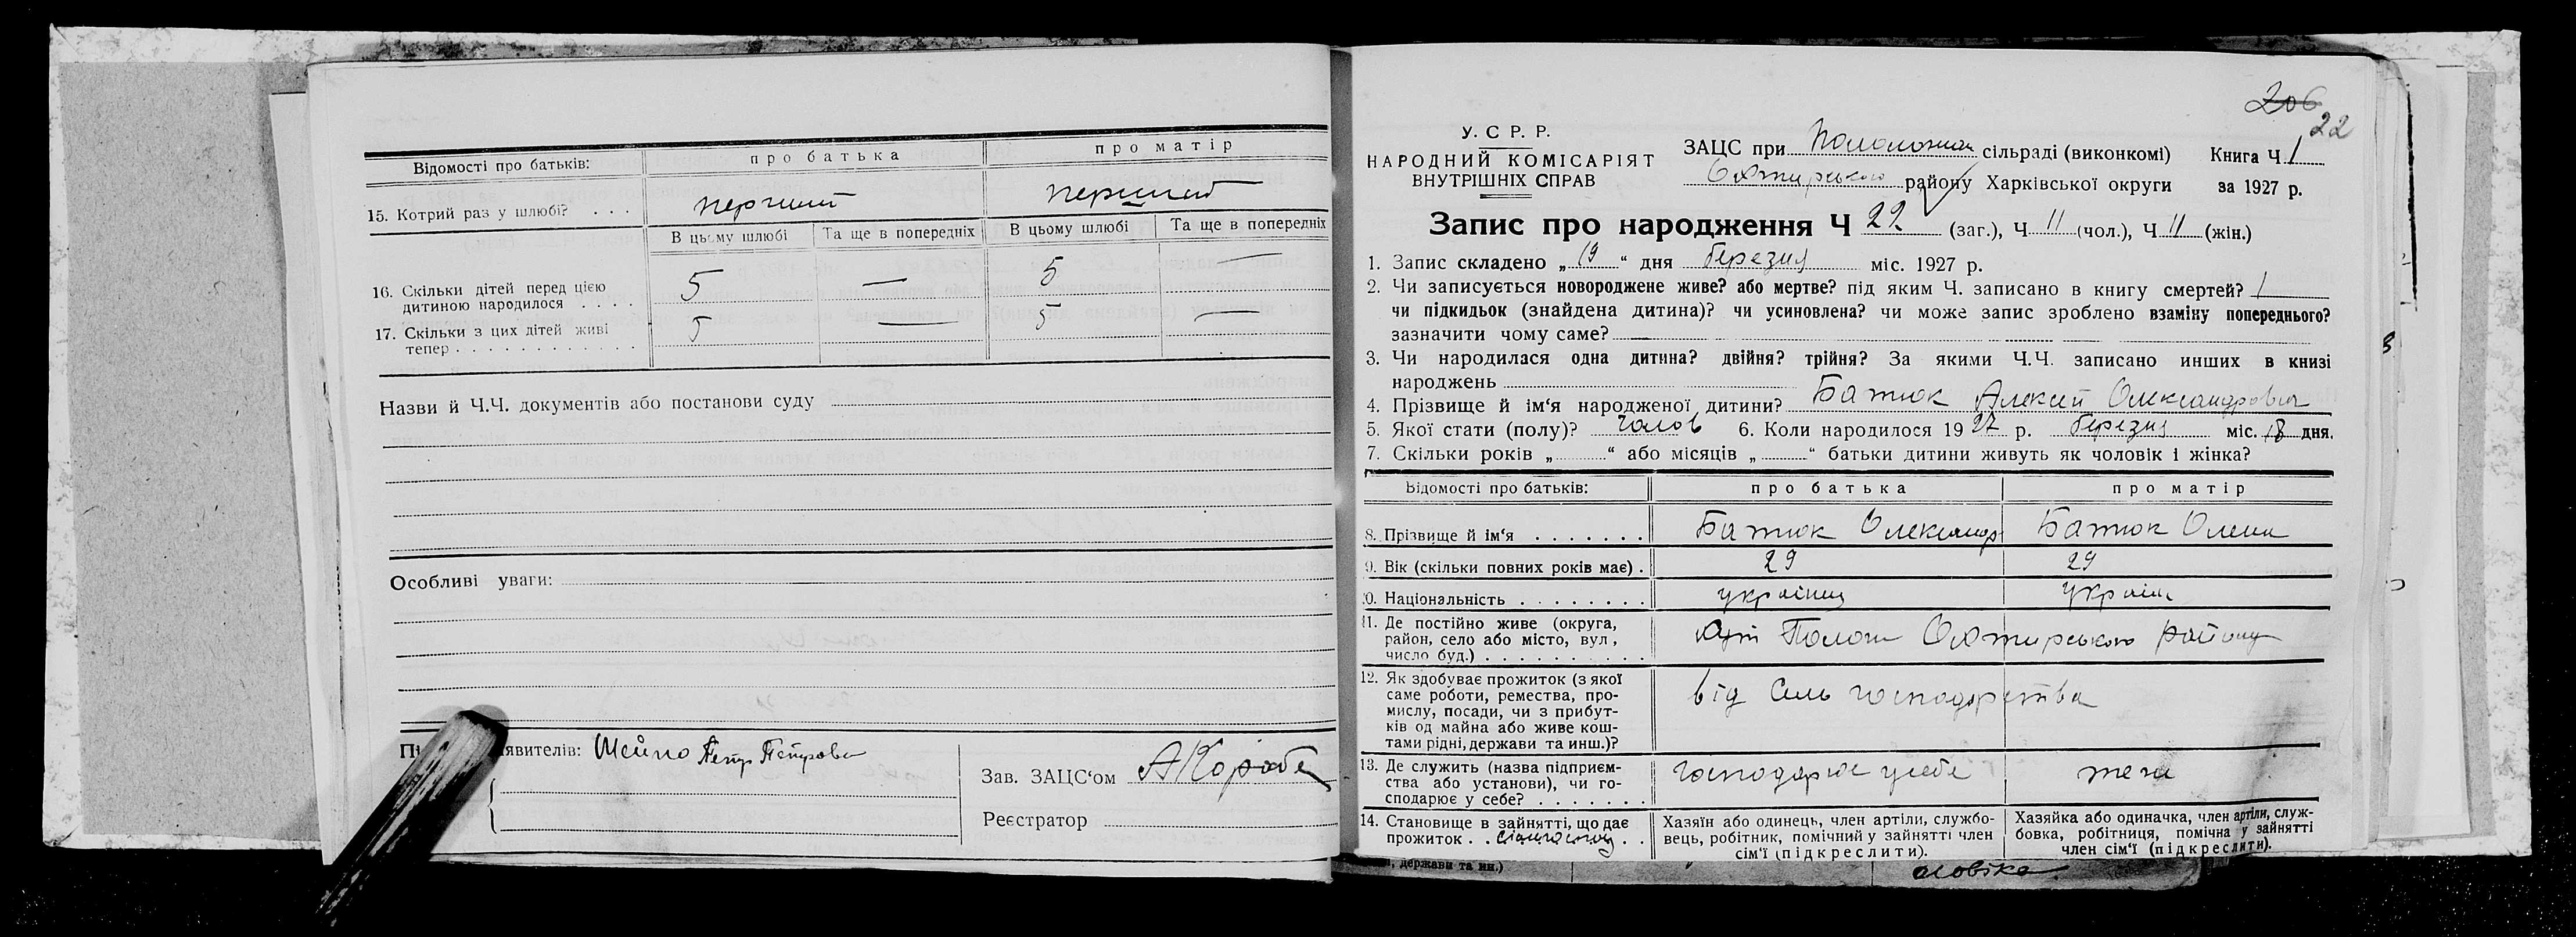 Відомості про батьків: про батька про матір
15. Котрий раз у шлюбі? . . . перший перший
В цьому шлюбі Та ще в попередніх В цьому шлюбі Та ще в попередніх
16. Скільки дітей перед цією
дитиною народилося . . . . 5 — 5 —
17. Скільки з цих дітей живі
тепер . . . . . . . . . . . . 5 — 5 —
Назви й Ч.Ч. документів або постанови суду
Особливі уваги:
явителів: Шейко Петр Петрови
Зав. ЗАЦС‘ом
Реєстратор
206
22
У. С Р. Р.
НАРОДНИЙ КОМІСАРІЯТ
ВНУТРІШНІХ СПРАВ
ЗАЦС при сільраді (виконкомі) Книга Ч 1
Охтирського району Харківської округи за 1927 р.
Запис про народження Ч 22 (заг.), Ч 11 (чол.), Ч 11 (жін.)
1. Запис складено „ 19 “ дня березня міс. 1927 р.
2. Чи записується новороджене живе? або мертве? під яким Ч. записано в книгу смертей? /
чи підкидьок (знайдена дитина)? чи усиновлена? чи може запис зроблено взаміну попереднього?
зазначити чому саме?
3. Чи народилася одна дитина? двійня? трійня? За якими Ч.Ч. записано инших в книзі
народжень
4. Прізвище й ім‘я народженої дитини? Батюк Алексей Олександрович
5. Якої стати (полу)? чолов 6. Коли народилося 19 27 р. березня міс. 18 дня.
7. Скільки років „ “ або місяців „ “ батьки дитини живуть як чоловік і жінка?
Відомості про батьків: про батька про матір
8. Прізвище й ім‘я . . . . . . . Батюк Олександр Батюк Олена
9. Вік (скільки повних років має) . 29 29
0. Національність . . . . . . . . українец україн
11. Де постійно живе (округа,
район, село або місто, вул,
число буд.) . . . . . . . . . . хут Пологи Охтирського району
12. Як здобуває прожиток (з якої
саме роботи, ремества, про-
мислу, посади, чи з прибут-
ків од майна або живе кош-
тами рідні, держави та инш.)?
від сель господарства
13. Де служить (назва підприєм-
ства або установи), чи го-
сподарює у себе? . . . . . . .
господарює у себе теж
14. Становище в зайнятті, що дає
прожиток . .
Хазяїн або одинець, член артіли, службо-
вець, робітник, помічний у зайнятті член
сім‘ї (підкреслити).
Хазяйка або одиначка, член артіли, служ-
бовка, робітниця, помічна у зайнятті
член сім‘ї (підкреслити).
держави та ин.)